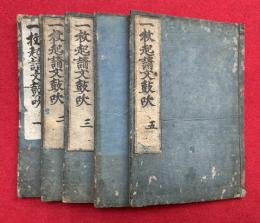 一枚起請文鼓吹 五
一枚起請文鼓吹 三
一枚起請文鼓吹 二
一枚起請文鼓吹 一